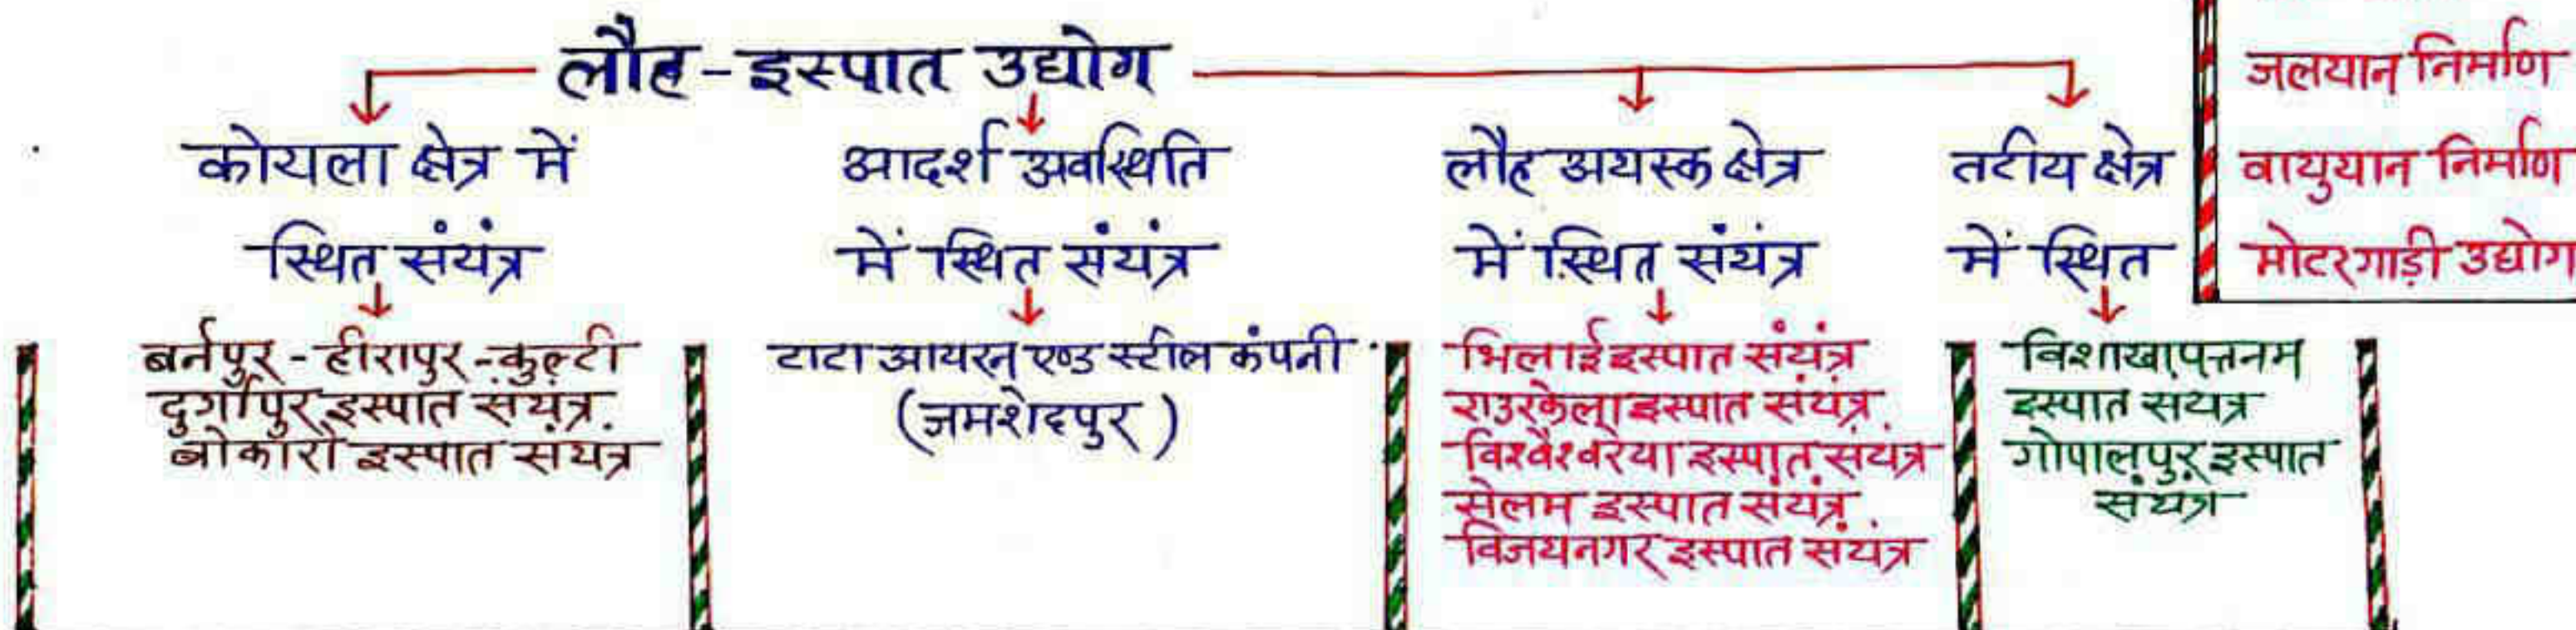 लौह-इस्पात उद्योग
कोयला क्षेत्र में
स्थित संयंत्र
बर्नपुर-हीरापुर-कुल्टी
दुर्गापुर इस्पात संयंत्र
बोकारो इस्पात संयंत्र
आदर्श अवस्थिति
में स्थित संयंत्र
टाटा आयरन एण्ड स्टील कंपनी
(जमशेदपुर)
लौह अयस्क क्षेत्र
में स्थित संयंत्र
भिलाई इस्पात संयंत्र
राउरकेला इस्पात संयंत्र
विश्वेश्वरैया इस्पात संयंत्र
सेलम इस्पात संयंत्र
विजयनगर इस्पात संयंत्र
तटीय क्षेत्र
में स्थित
विशाखापत्तनम
इस्पात संयंत्र
गोपालपुर इस्पात
संयंत्र
जलयान निर्माण
वायुयान निर्माण
मोटरगाड़ी उद्योग